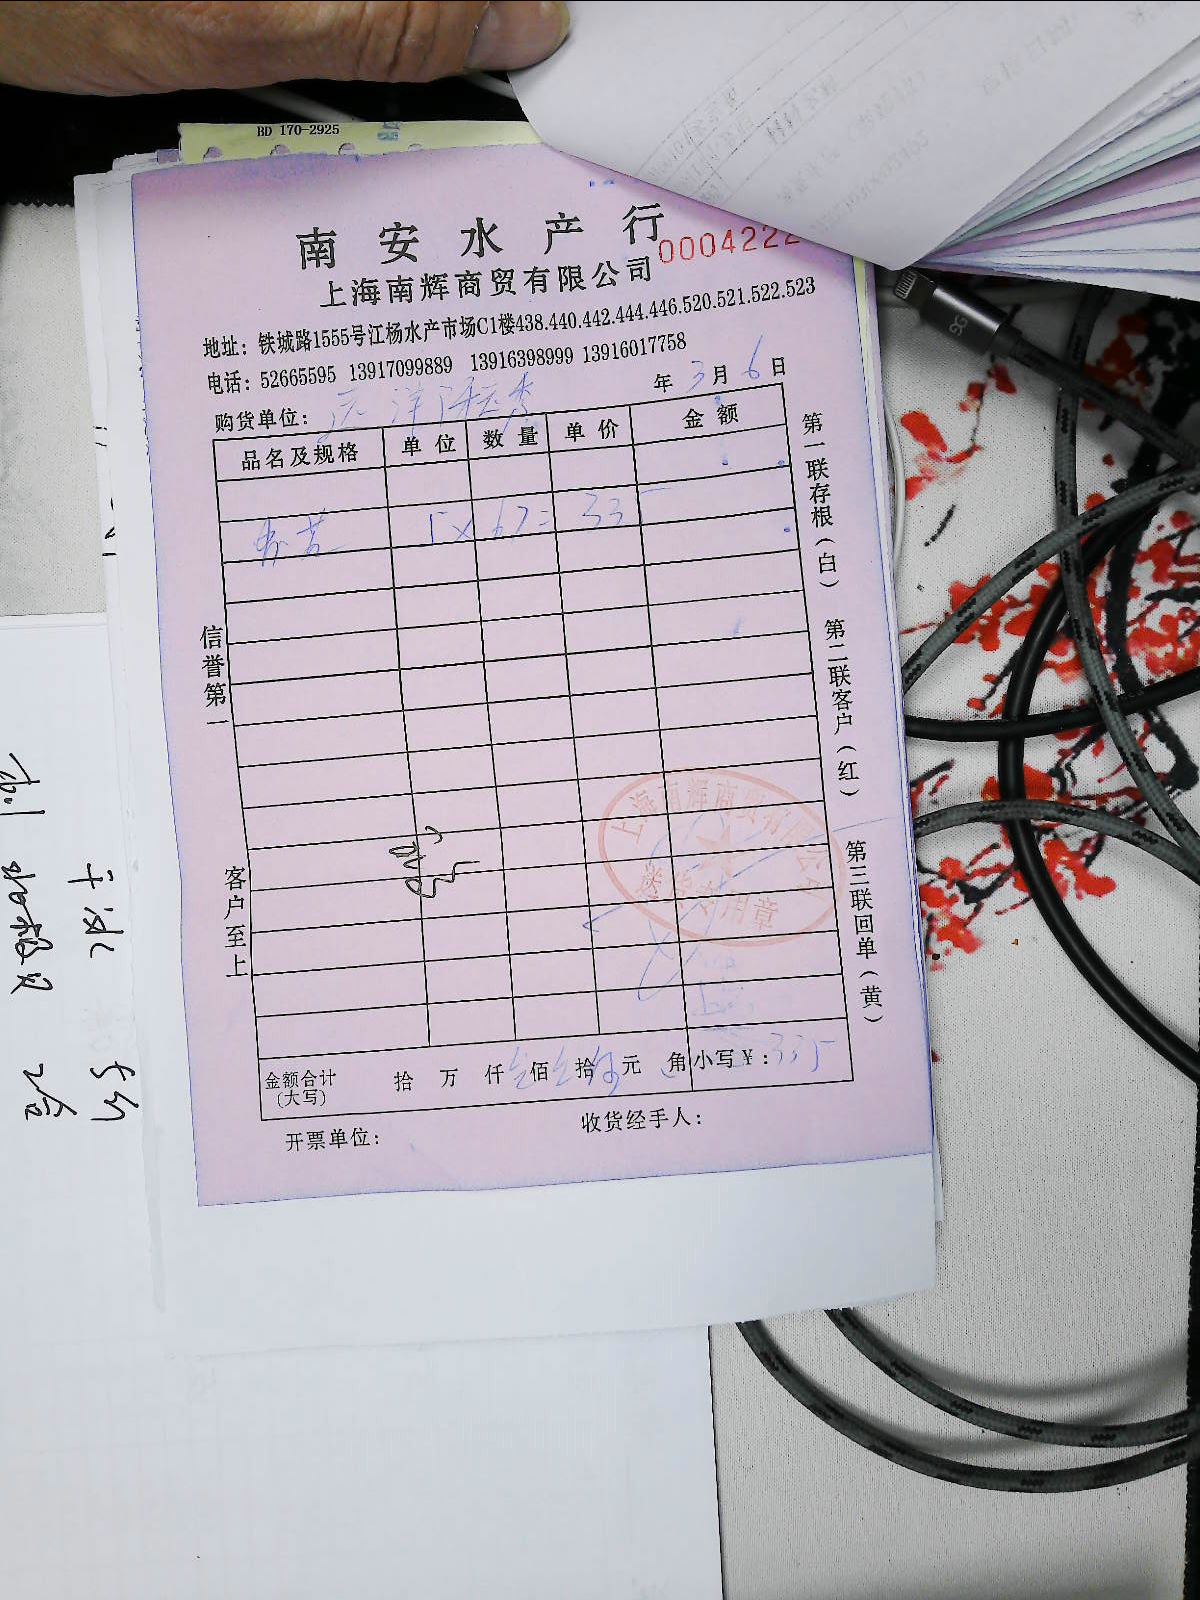 BD 170-2925
南安水产行
0004222
上海南辉商贸有限公司
地址：铁城路1555号江杨水产市场C1楼438.440.442.444.446.520.521.522.523
电话：52665595 13917099889 13916398999 13916017758
年 3月 6日
购货单位：
品名及规格 单位 数量 单价 金额
5 × 67= 335
信誉第一
客户至上
第一联存根（白）
第二联客户（红）
第三联回单（黄）
上海南辉商贸有限公司
送货专用章
金额合计（大写） 拾 万 仟 叁佰 叁拾 伍元 角 小写￥：335
开票单位：
收货经手人：